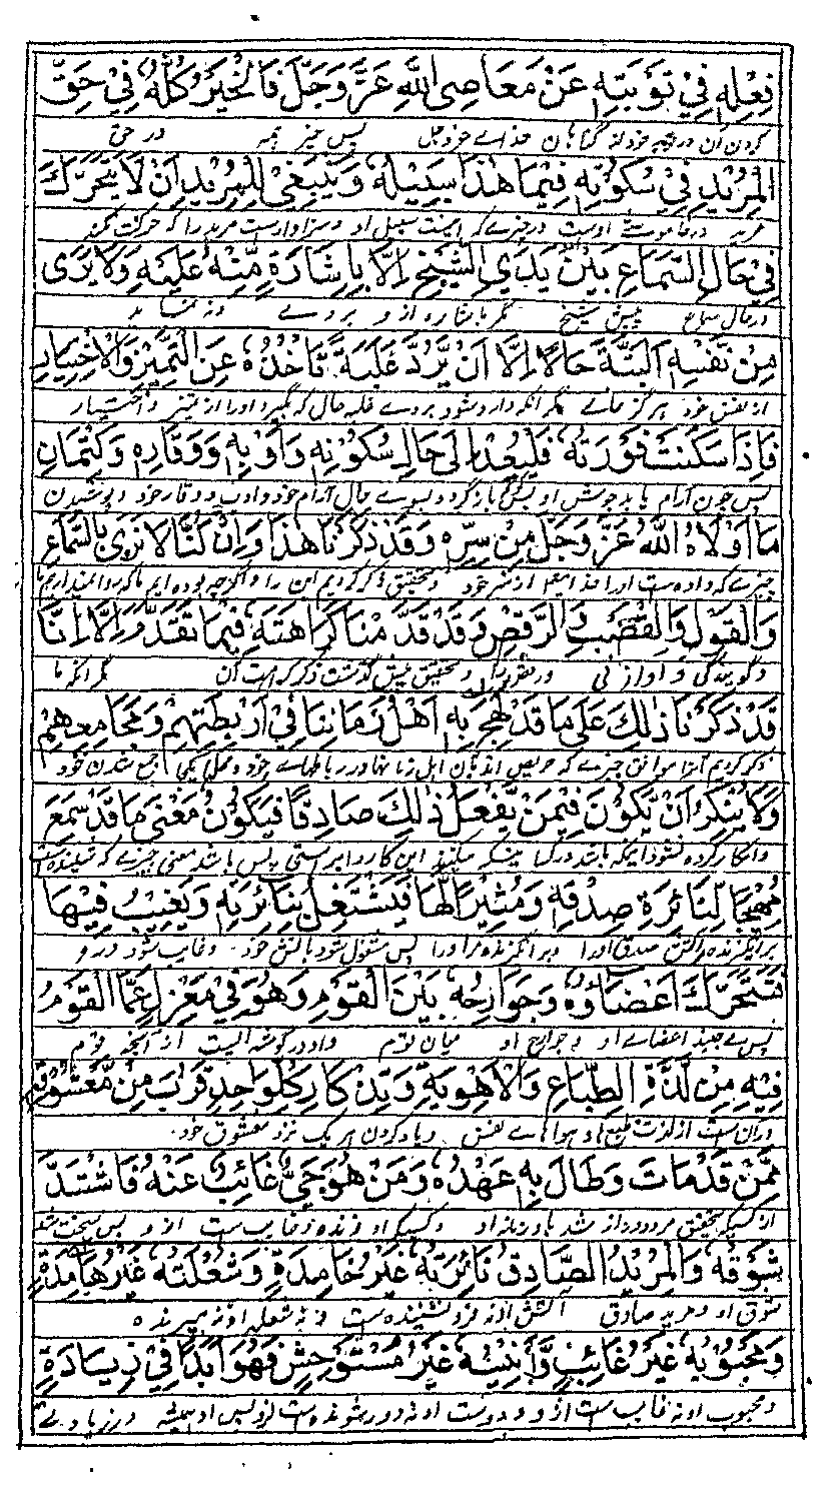 فِعْلِهٖ فِيْ تَوْبَتِهٖ عَنْ مَعَاصِى اللّٰهِ عَزَّ وَجَلَّ فَالْخَيْرُ كُلُّهٗ فِيْ حَقِّ
کردن آن در توبہ خود از گناہان خداے عزوجل پس خیر ہمہ در حق
الْمُرِيْدِ فِيْ سُكُوْتِهٖ فِيْمَا هٰذَا سَبِيْلُهٗ وَيَنْبَغِيْ لِلْمُرِيْدِ اَنْ لَا يَتَحَرَّكَ
مرید در خاموشے اوست در چیزے کہ اینست سبیل او و سزاوارست مرید را کہ حرکت نکند
فِيْ حَالِ السَّمَاعِ بَيْنَ يَدَيِ الشَّيْخِ اِلَّا بِاِشَارَةٍ مِّنْهُ عَلَيْهِ وَلَا يَرٰى
در حال سماع پیش شیخ مگر باشارہ از و بر وے و نہ نماید
مِنْ نَّفْسِهٖ اَلْبَتَّةَ حَالًا اِلَّا اَنْ يَّرُدَّ غَلَبَةً تَاْخُذُهٗ عَنِ التَّمِيْزِ وَالْاِخْتِيَارِ
از نفس خود ہرگز حالے مگر آنکہ وارد شود بر وے غلبہ حال کہ بگیرد اورا از تمیز و اختیار
فَاِذَا سَكَنَتْ فَوْرَتُهٗ فَلْيُعِدْ اِلٰى حَالِ سُكُوْنِهٖ وَاَدَبِهٖ وَوَقَارِهٖ وَكِتْمَانِ
پس چون آرام یابد جوشش او پس باز گردد بسوے حال آرام خود و ادب و وقار خود و پوشیدن
مَا اَوْلَاهُ اللّٰهُ عَزَّ وَجَلَّ مِنْ سِرِّهٖ وَقَدْ ذَكَرْنَا هٰذَا وَاِنْ كُنَّا لَا نَرٰى بِالسَّمَاعِ
چیزے کہ دادہ است اورا خدا از سر خود و بتحقیق ذکر کردیم این را و اگرچہ بودہ ایم ما کہ روا نمیداریم
وَالْقَوْلِ وَالْقَصَبِ الرَّقْصِ وَقَدْ قَدَّمْنَا كَرَاهَتَهٗ فِيْمَا تَقَدَّمَ اِلَّا اِنَّا
و گویندگی و آواز نی و رقص و بتحقیق پیش گذشت ذکر کراہت آن مگر آنکہ ما
قَدْ ذَكَرْنَا ذٰلِكَ عَلٰى مَا قَدْ لَهِجَ بِهٖ اَهْلُ زَمَانِنَا فِيْ اَرْبِطَتِهِمْ وَمَجَامِعِهِمْ
ذکر کردیم آنرا موافق چیزے کہ حریص اند بآن اہل زمانہا در رباطہاے خود و جمع شدن خود
وَلَا يُنْكَرُ اَنْ يَّكُوْنَ فِيْمَنْ يَّفْعَلُ ذٰلِكَ صَادِقًا فَيَكُوْنُ مَعْنٰى مَا قَدْ سَمِعَ
و انکار کردہ نشود اینکہ باشد در کسانیکہ میکنند این کار را براستی پس باشد معنی چیزے کہ شنیدہ است
مُهَيِّجًا لِنَائِرَةِ صِدْقِهٖ وَمُثِيْرًا لَّهَا فَيَشْتَغِلُ بِنَائِرَتِهٖ وَيَغِيْبُ فِيْهَا
برانگیزندہ آتش صدق اورا و برانگیزندہ مر اورا پس مشغول شود بآتش خود و غائب شود در و
فَتَتَحَرَّكَ اَعْضَاؤُهٗ وَجَوَارِحُهٗ بَيْنَ الْقَوْمِ وَهُوَ فِيْ مَعْزِلٍ عَمَّا الْقَوْمُ
پس بجنبد اعضاے او و جوارح او میان قوم و او در گوشہ ایست از آنچہ قوم
فِيْهِ مِنْ لَّذَّةِ الطِّبَاعِ وَالْاَهْوِيَةِ وَتِذْكَارِ كُلِّ وَاحِدٍ قَرُبَ مِنْ مَّعْشُوْقِهٖ
در آن است از لذت طبع و ہواہاے نفس و یاد کردن ہر یک نزد معشوق خود
مِمَّنْ قَدْ مَاتَ وَطَالَ بِهٖ عَهْدُهٗ وَمَنْ هُوَ حَيٌّ غَائِبٌ عَنْهُ فَاشْتَدَّ
از کسیکہ بتحقیق مرد و دراز شد باو زمانہ او و کسیکہ او زندہ و غایب ست از و پس سخت شد
شَوْقُهٗ وَالْمُرِيْدُ الصَّادِقُ نَائِرَتُهٗ غَيْرُ خَامِدَةٍ وَشُعْلَتُهٗ غَيْرُ هَامِدَةٍ
شوق او و مرید صادق آتش او نہ فرونشینندہ ست و نہ شعلہ او نہ میرندہ
وَمَحْبُوْبُهٗ غَيْرُ غَائِبٍ وَّاَنِيْسُهٗ غَيْرُ مُسْتَوْحِشٍ فَهُوَ اَبَدًا فِيْ زِيَادَةٍ
و محبوب او نہ غایب ست از و و دوست او نہ دور شوندہ ست از و پس او ہمیشہ در زیادتے